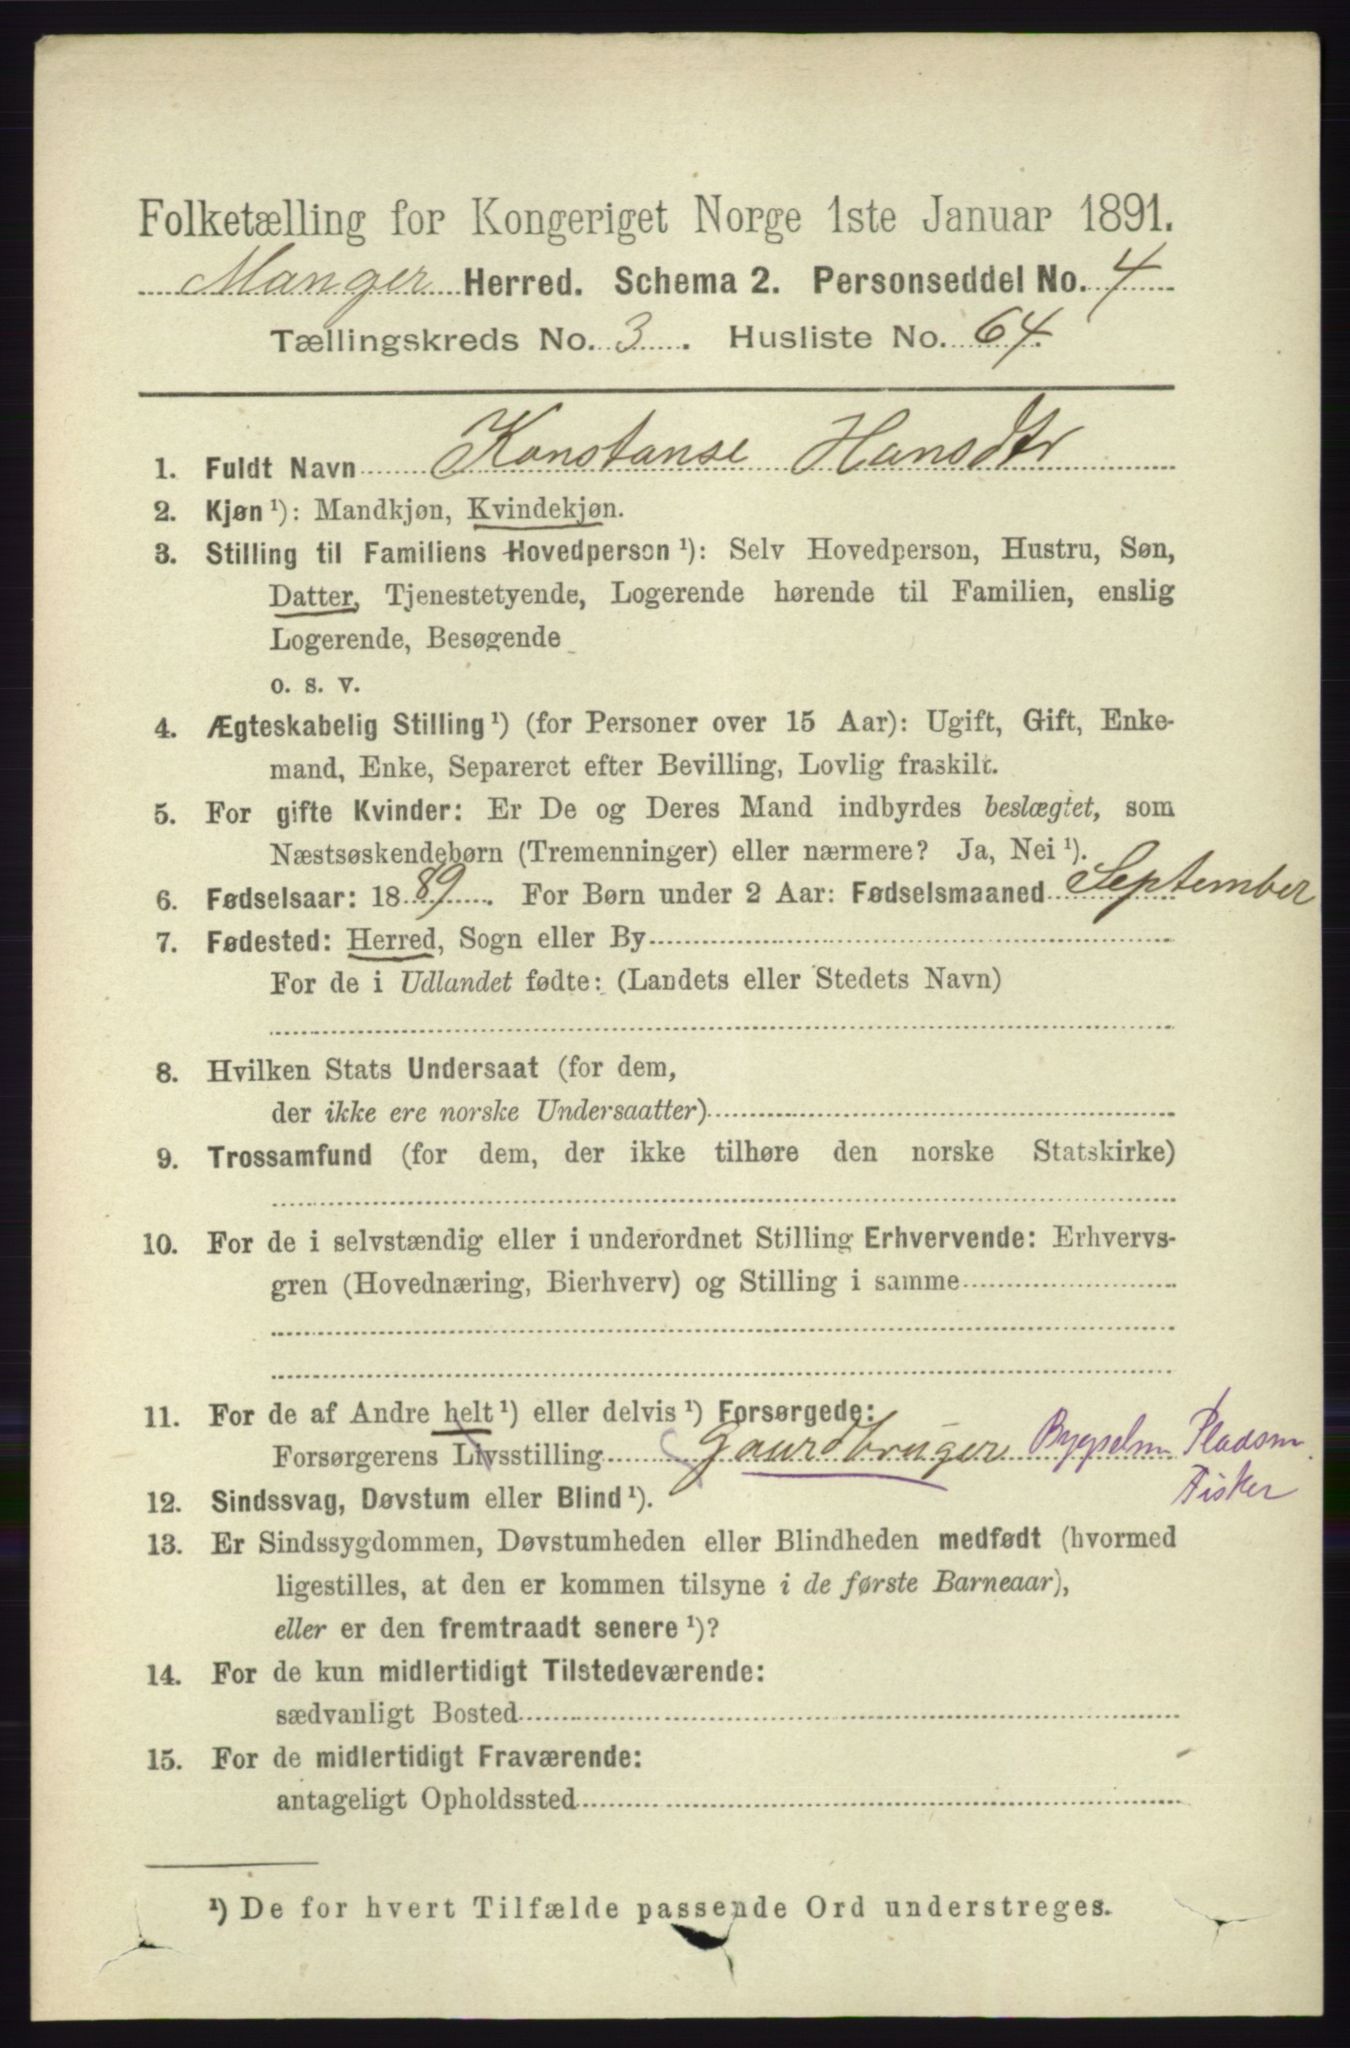 Folketælling for Kongeriget Norge 1ste Januar 1891.
Manger Herred. Schema 2. Personseddel No. 4
Tællingskreds No. 3. Husliste No. 64.
1. Fuldt Navn Konstanse Hansdtr
2. Kjøn ¹): Mandkjøn, Kvindekjøn.
3. Stilling til Familiens Hovedperson ¹): Selv Hovedperson, Hustru, Søn,
Datter, Tjenestetyende, Logerende hørende til Familien, enslig
Logerende, Besøgende
o. s. v.
4. Ægteskabelig Stilling ¹) (for Personer over 15 Aar): Ugift, Gift, Enke-
mand, Enke, Separeret efter Bevilling, Lovlig fraskilt.
5. For gifte Kvinder: Er De og Deres Mand indbyrdes beslægtet, som
Næstsøskendebørn (Tremenninger) eller nærmere? Ja, Nei ¹).
6. Fødselsaar: 1889. For Børn under 2 Aar: Fødselsmaaned September
7. Fødested: Herred, Sogn eller By
For de i Udlandet fødte: (Landets eller Stedets Navn)
8. Hvilken Stats Undersaat (for dem,
der ikke ere norske Undersaatter)
9. Trossamfund (for dem, der ikke tilhøre den norske Statskirke)
10. For de i selvstændig eller i underordnet Stilling Erhvervende: Erhvervs-
gren (Hovednæring, Bierhverv) og Stilling i samme
11. For de af Andre helt ¹) eller delvis ¹) Forsørgede:
Forsørgerens Livsstilling Gaardbruger Bygselm Pladsm.
Fisker
12. Sindssvag, Døvstum eller Blind ¹).
13. Er Sindssygdommen, Døvstumheden eller Blindheden medfødt (hvormed
ligestilles, at den er kommen tilsyne i de første Barneaar),
eller er den fremtraadt senere ¹)?
14. For de kun midlertidigt Tilstedeværende:
sædvanligt Bosted
15. For de midlertidigt Fraværende:
antageligt Opholdssted
¹) De for hvert Tilfælde passende Ord understreges.